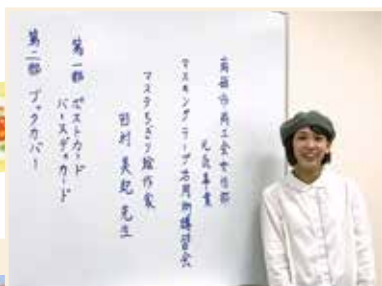 商工会女性部
元気事業
マスキングテープ活用術講習会
マステちぎり絵作家
田村美紀先生
第一部 ポストカード
バースデイカード
第二部 ブックカバー